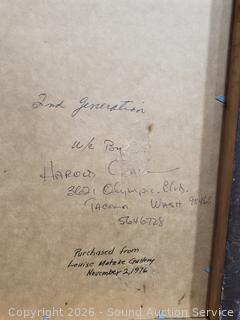 2nd Generation
w/c By
HAROLD
3621 Olympic Blvd.
TACOMA WASH
5646728
Purchased from
Louise Matzke Gallery
November 2, 1976
Copyright 2026 - Sound Auction Service